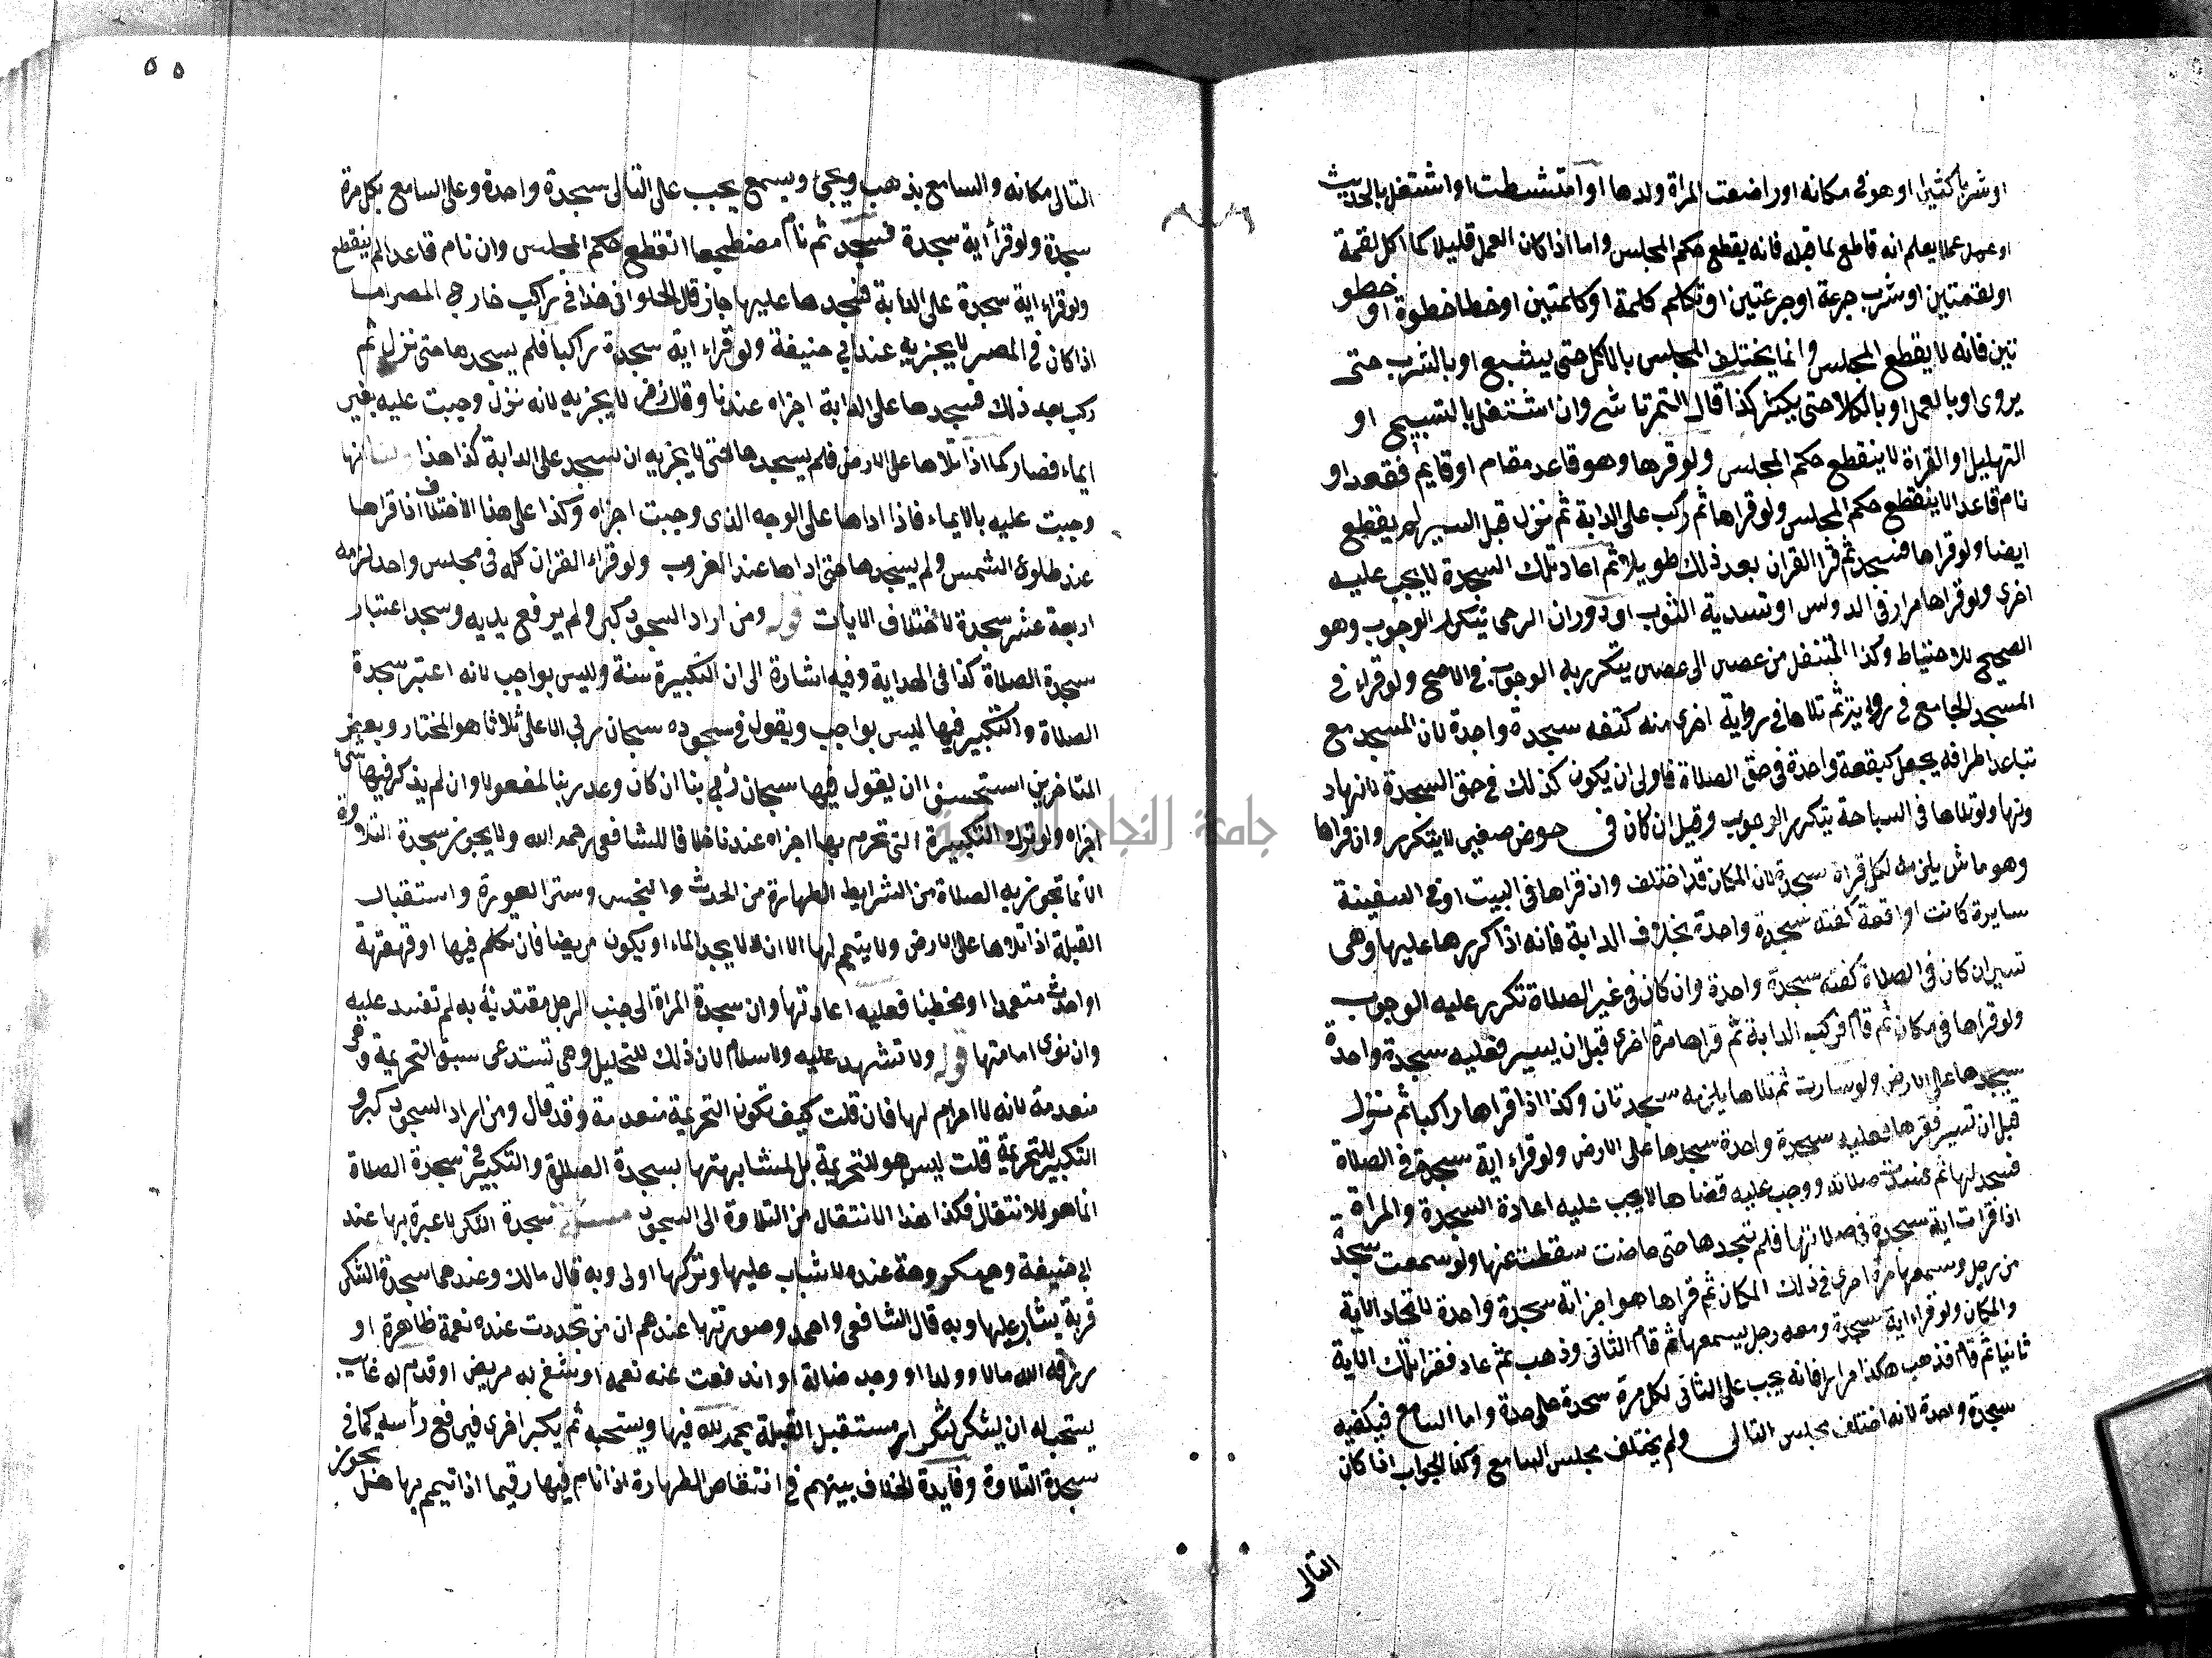 او شربا كثيرا او هو في مكانه او راضعت المراة ولدها او امتشطت او اشتغل بالحديث
او عمل عملا يعلم انه قاطع لما قبله فانه يقطع حكم المجلس واما اذا كان العمل قليلا كما اكل لقمة
او لقمتين او شرب جرعة او جرعتين او تكلم كلمة او كلمتين او خطا خطوة او خطو
تين فانه لا يقطع المجلس وانما يختلف المجلس بالاكل حتى يشبع او بالشرب حتى
يروى او بالعمل او بالكلام حتى يكثر كذا قال التمرتاشي وان اشتغل بالتسبيح او
التهليل او القراة لا ينقطع حكم المجلس ولو قرها وهو قاعد مقام او قايم فقعد او
نام قاعدا لا ينقطع حكم المجلس ولو قراها ثم ركب على الدابة ثم نزل قبل السير لم يقطع
ايضا ولو قراها فسجد ثم قرا القران بعد ذلك طويلا ثم اعاد تلك السجدة لا يجب عليه
اخرى ولو قراها مرار في الدوس او تسدية الثوب او دوران الرحى يتكرر الوجوب وهو
الصحيح للاحتياط وكذا المتنفل من غصن الى غصن يتكرر به الوجوب في الاصح ولو قراء في
المسجد الجامع في زاوية ثم تلاها في زاوية اخرى منه كتفه سجدة واحدة لان المسجد مع
تباعد اطرافه يجعل كبقعة واحدة في حق الصلاة فاولى ان يكون كذلك في حق السجدة لانها د
ونها ولو تلاها في السباحة يتكرر الوجوب وقيل ان كان في حوض صغير لا يتكرر وان قراها
وهو ماش يلزمه لكل قراة سجدة لان المكان قد اختلف وان قراها في البيت او في السفينة
سايرة كانت او واقعة كفته سجدة واحدة بخلاف الدابة فانه اذا كررها عليها وهي
تسير ان كان في الصلاة كفته سجدة واحدة وان كان في غير الصلاة تكرر عليه الوجوب
ولو قراها في مكان ثم قام فركب الدابة ثم قراها مرة اخرى قبل ان يسير فعليه سجدة واحدة
يسجدها على الارض ولو سارت ثم تلاها يلزمه سجدتان وكذا اذا قراها راكبا ثم نزل
قبل ان تسير فقرها فعليه سجدة واحدة سجدها على الارض ولو قراء اية سجدة في الصلاة
فسجد لها ثم فسدت صلاته ووجب عليه قضاها لا يجب عليه اعادة السجدة والمراة
اذا قرات اية سجدة في صلاتها فلم تسجدها حتى حاضت سقطت عنها ولو سمعت سجدة
من رجل وسمعها مرة اخرى في ذلك المكان ثم قراها هو اجزاته سجدة واحدة لاتحاد الاية
والمكان ولو قراء اية سجدة ومعه رجل يسمعها ثم قام الثاني وذهب ثم عاد فقرا تلك الاية
ثانيا ثم قام فذهب هكذا مرارا فانه يجب على التالي لكل مرة سجدة على حدة واما السامع فيكفيه
سجدة واحدة لانه اختلف مجلس التالي ولم يختلف مجلس السامع وكذا الجواب اذا كان
التالى
٥٥
التالى مكانه والسامع يذهب ويجئ ويسمع يجب على التالى سجدة واحدة وعلى السامع بكل مرة
سجدة ولو قرأ اية سجدة فسجد ثم نام مضطجعا انقطع حكم المجلس وان نام قاعدا لم ينقطع
ولو قراء اية سجدة على الدابة فسجدها عليها جاز قال الحلواني هذا في راكب خارج المصر اما
اذا كان في المصر لا يجزيه عند ابي حنيفة ولو قراء اية سجدة راكبا فلم يسجدها حتى نزل ثم
ركب بعد ذلك فسجدها على الدابة اجزاه عندنا وقال زفر لا يجزيه لانه نزل وجبت عليه بغير
ايماء فصار كما اذا تلاها على الارض فلم يسجدها حتى لا يجزيه ان سجد على الدابة كذا هذا ولنا انها
وجبت عليه بالايماء فاذا اداها على الوجه الذى وجبت اجزاه وكذا على هذا الاختلاف اذا قراها
عند طلوع الشمس ولم يسجدها حتى اداها عند الغروب ولو قراء القران كله في مجلس واحد لزمه
اربعة عشر سجدة لاختلاف الايات قوله ومن اراد السجود كبر ولم يرفع يديه وسجد اعتبار
سجدة الصلاة كذا في الهداية وفيه اشارة الى ان التكبيرة سنة وليس بواجب لانه اعتبر سجدة
الصلاة والتكبير فيها ليس بواجب ويقول في سجوده سبحان ربي الاعلى ثلاثا هو المختار وبعض
المتاخرين استحسنوا ان يقول فيها سبحان ربنا ان كان وعد ربنا لمفعولا وان لم يذكر فيها شئ
اجزاه ولو ترك التكبيرة التي تحرم بها اجزاه عندنا خلافا للشافعى رحمه الله ولا يجوز سجدة التلاوة
الا بما تجوز به الصلاة من الشرايط الطهارة من الحدث والنجس وستر العورة واستقبال
القبلة اذا تلاها على الارض ولا يتيمم لها الا ان لا يجد الماء او يكون مريضا فان تكلم فيها او قهقهة
او احدث متعمدا او مخطيا فعليه اعادتها وان سجدة المراة الى جنب الرجل مقتدية به لم تفسد عليه
وان نوى امامتها قوله ولا تشهد عليه ولا سلام لان ذلك للتحليل وهى تستدعى سبق التحريمة وهى
منعدمة لانه لا احرام لها فان قلت كيف تكون التحريمة منعدمة وقد قال ومن اراد السجود كبر و
التكبير للتحريمة قلت ليس هو للتحريمة بل لمشابهتها بسجدة الصلاة والتكبير في سجدة الصلاة
انما هو للانتقال فكذا هذا الانتقال من التلاوة الى السجود مسئلة سجدة الشكر لا عبرة بها عند
ابي حنيفة وهي مكروهة عنده لا شباب عليها وتركها اولى وبه قال مالك وعندهما سجدة الشكر
قربة يثاب عليها وبه قال الشافعى واحمد وصورتها عندهم ان من تجددت عنده نعمة ظاهرة او
رزقه الله مالا او ولدا او وجد ضالة او اندفعت عنه نقمة او شفى به مريض او قدم له غايب
يستحب له ان يشكر لشكر الله مستقبل القبلة يحمد لله فيها ويسبحه ثم يكبر اخرى فيرفع رأسه كما في
سجدة التلاوة وفايدة الخلاف بينهم في انتقاض الطهارة اذا نام فيها وفيما اذا تيمم بها هل يجوز
جامعة النجاح الوطنية